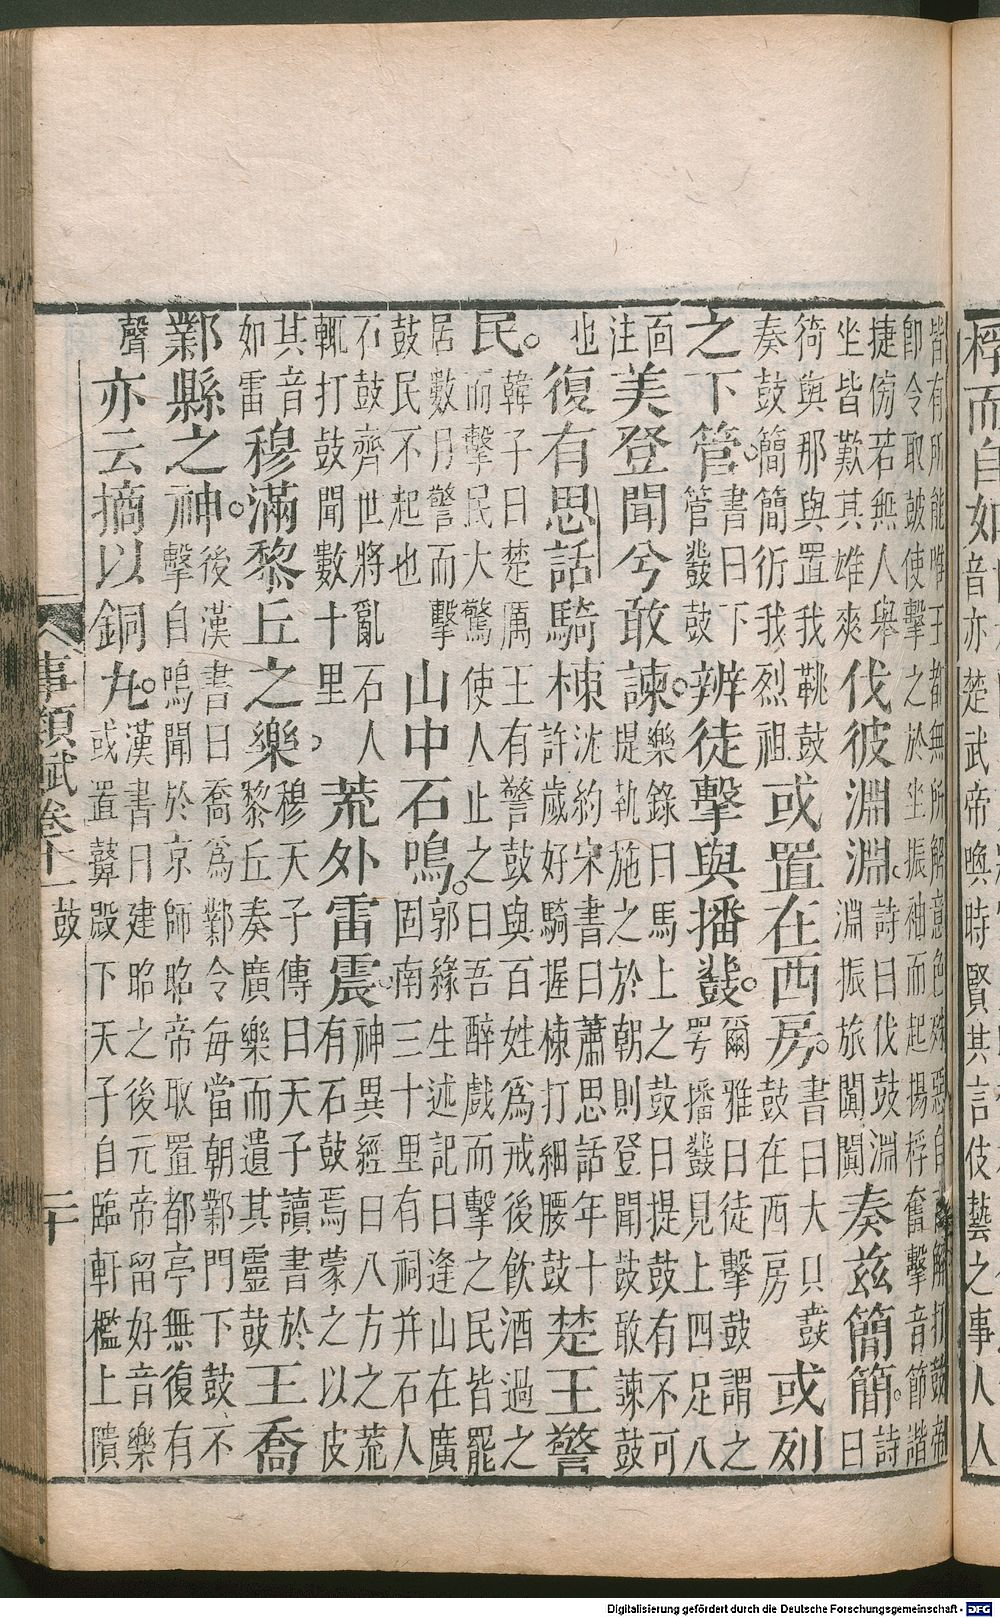 桴而自如音亦楚武帝喚時賢其言伎藝之事人人
皆有所能唯王都無所解意色殊惡自言解打鼓帝
即令取鼓使擊之於坐振袖而起揚桴奮擊音節諧
捷傍若無人舉坐皆歎其雄爽伐彼淵淵詩曰伐鼓淵淵振旅闐闐奏茲簡簡。詩曰
猗與那與置我鞉鼓奏鼓簡簡衎我烈祖或置在西房。書曰大貝鼖鼓在西房或列
之下管。書曰下管鼗鼓辨徒擊與播鼗。爾雅曰徒擊鼓謂之咢播鼗見上四足八
面注美登聞兮敢諫。樂錄曰馬上之鼓曰提鼓有不可提執施之於朝則登聞鼓敢諫鼓
也復有思話騎棟沈約宋書曰蕭思話年十許歲好騎握棟打細腰鼓楚王警
民。韓子曰楚厲王有警鼓與百姓為戒後飲酒過之而擊民大驚使人止之曰吾醉戲而擊之民皆罷
居數月警而擊鼓民不起也山中石鳴。郭緣生述記曰逢山在廣固南三十里有祠并石人
石鼓齊世將亂石人輒打鼓聞數十里荒外雷震。神異經曰八方之荒有石鼓焉蒙之以皮
其音如雷穆滿黎丘之樂穆天子傳曰天子讀書於黎丘奏廣樂而遺其靈鼓王喬
鄴縣之神。後漢書曰喬為鄴令每當朝鄴門下鼓不擊自鳴聞於京師昭帝取置都亭無復有
聲亦云摘以銅丸。漢書曰建昭之後元帝留好音樂或置鼙殿下天子自臨軒檻上隤
事類賦卷十一 鼓 二十
Digitalisierung gefördert durch die Deutsche Forschungsgemeinschaft - DFG